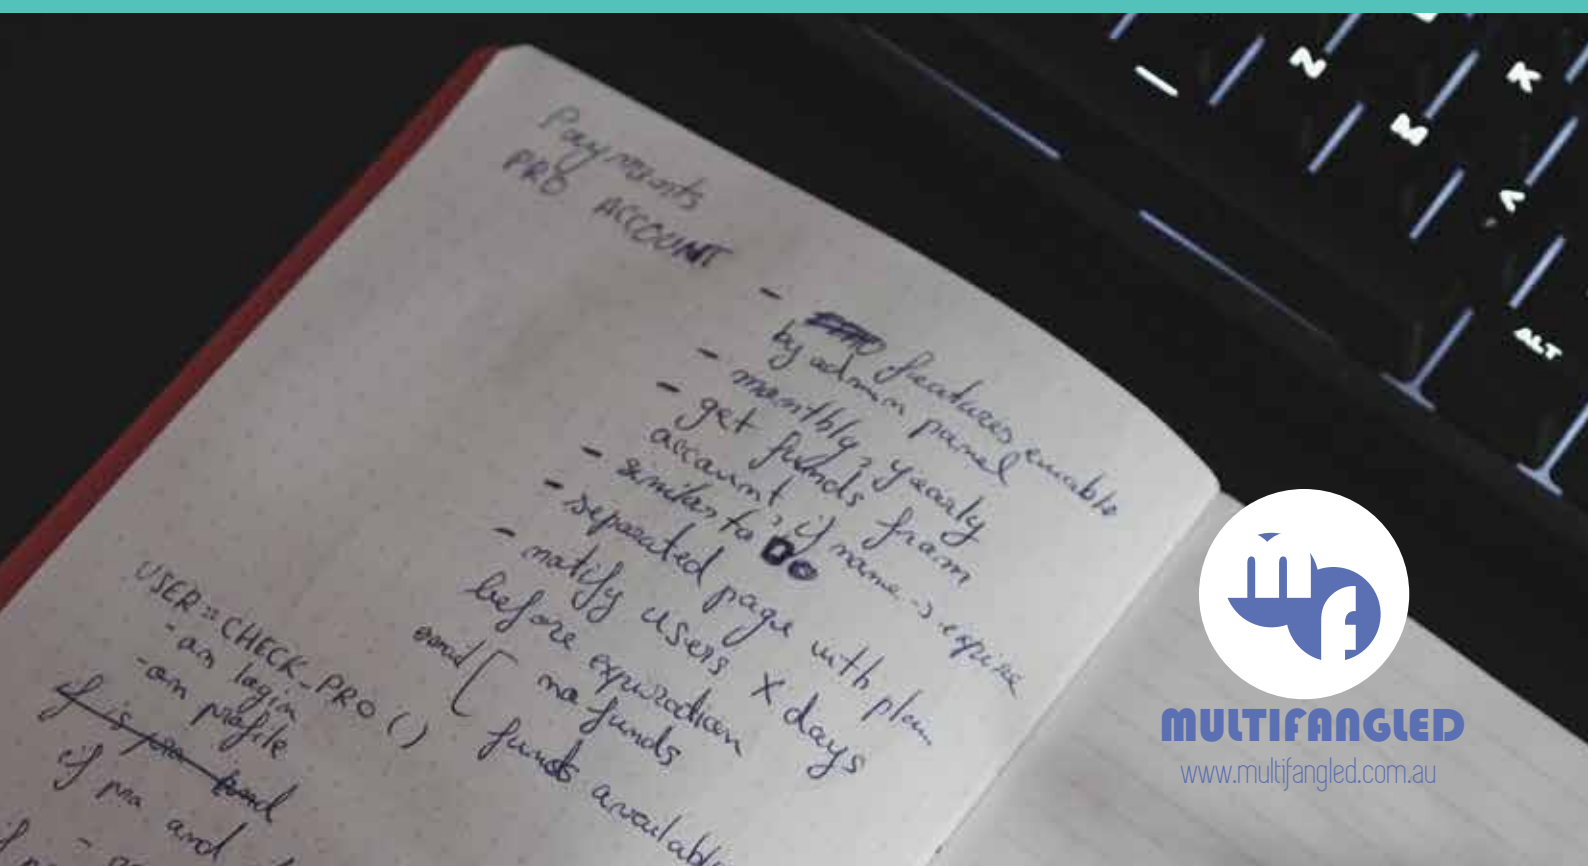 Payments
PRO ACCOUNT
- features enable
by admin panel
- monthly, yearly
- get funds from
account, if name -> expire
- similar to DO
- separated page with plan
- notify users X days
before expiration
email [ no funds
funds available
USER::CHECK_PRO ()
- on login
- on profile
if is pro and
if pro and
N
K
M
<
ALT
mf
MULTIFANGLED
www.multifangled.com.au